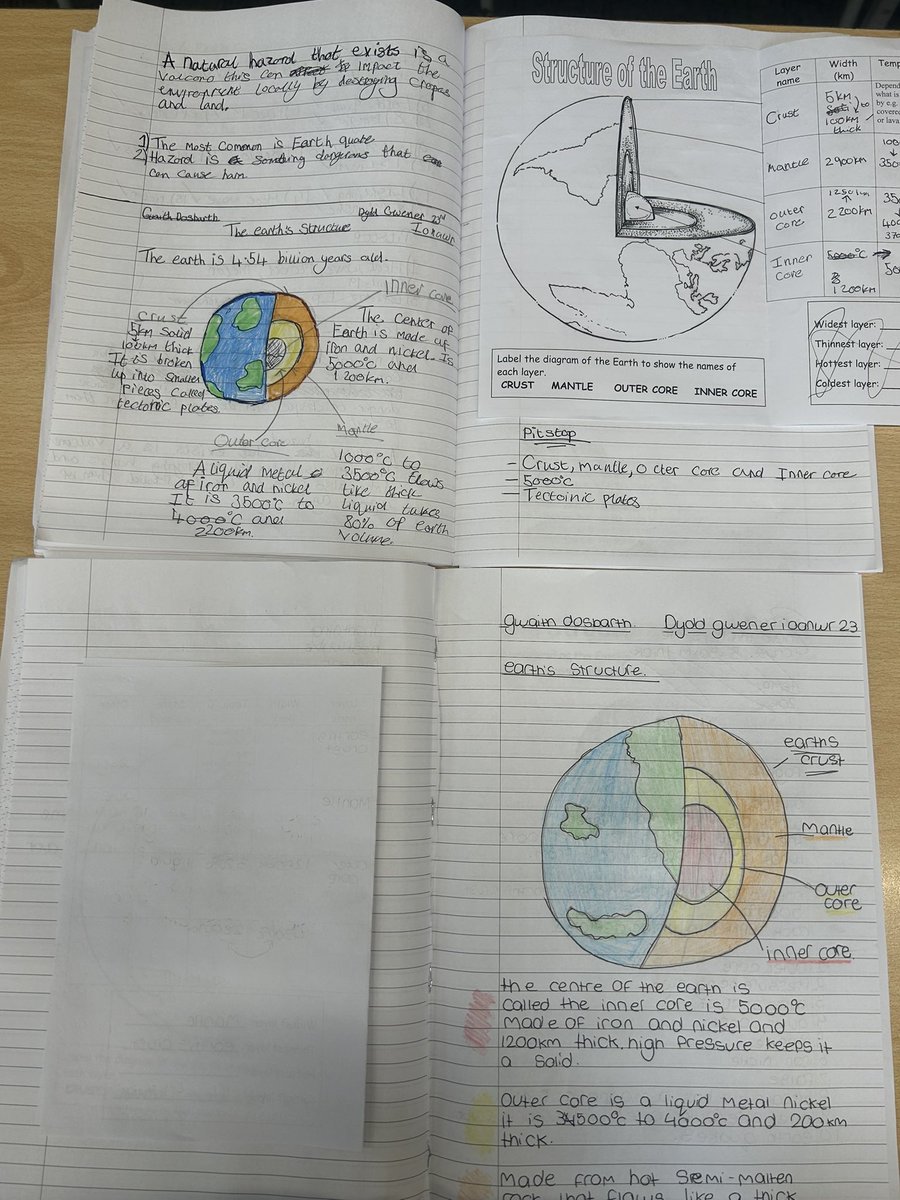 A natural hazord that exists is a
Volcano this can impact the
environment locally by destroying Cropas
and land.
1) The Most Common is Earth quate
2) Hazord is a Somthing dangerous that
can cause ham.
Gwaith Dosbarth
Dydd Gwener 23rd
Ionawr
The earth's Structure
The earth is 4.54 billion years old.
Crust
5km Solid
100km thick
It is broken
up into Smaller
Pieces called
tectonic plates.
Inner core
The Center of
Earth is made of
iron and nickel. Is
5000°C and
1200km.
Outer core
A liquid metal
of iron and nickel
It is 3500°C to
4000°C and
2200km.
Mantle
1000°C to
3500°C flows
like thick
liquid takes
80% of earth
volume.
Structure of the Earth
Label the diagram of the Earth to show the names of
each layer.
CRUST MANTLE OUTER CORE INNER CORE
Layer
name
Width
(km)
Temp
Crust
5km
to
100km
thick
Depend
what is
by e.g.
covered
or lava
Mantle
2900km
100
350
Outer
core
1250km
2200km
350
400
370
Inner
Core
5000°C
1200km
Widest layer:
Thinnest layer:
Hottest layer:
Coldest layer:
Pitstop
- Crust, mantle, Octer Core and Inner core
- 5000°C
- Tectoinic plates
Gwaith dosbarth Dydd gwener ioanwr 23
earth's Structure.
earth's
crust
Mantle
Outer
core
inner core
the centre of the earth is
called the inner core is 5000°C
Made of iron and nickel and
1200km thick. high Pressure keeps it
a Solid.
Outer core is a liquid Metal Nickel
it is 34500°C to 4000°C and 200km
thick.
Made from hot Semi-malten
rock that flows like a thick